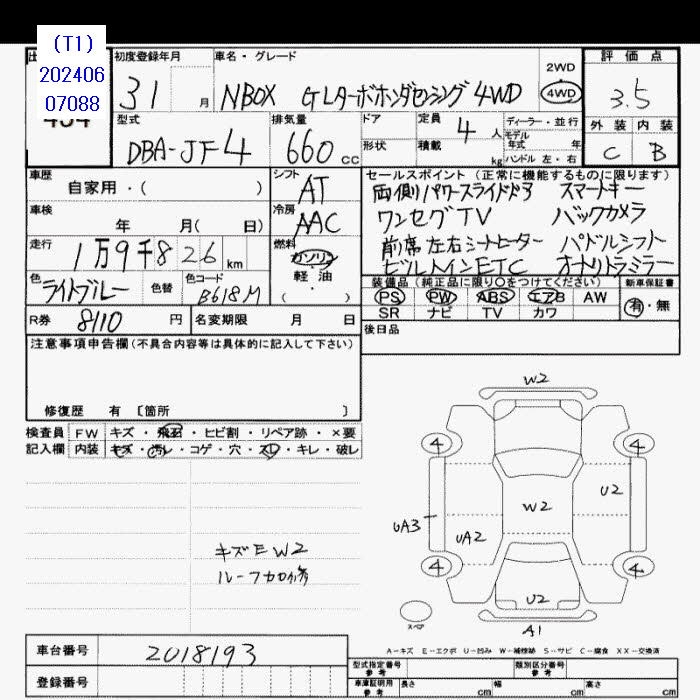 (T1)
202406
07088
初度登録年月
31 月
車名・グレード
NBOX GLターボホンダセンシング 4WD
2WD
4WD
評価点
3.5
外装 内装
C B
型式
DBA-JF4
排気量
660 cc
ドア
形状
定員 4 人
積載 kg
ディーラー・並行
モデル年式 年
ハンドル 左・右
車歴
自家用・( )
シフト
AT
車検
年 月( 日)
冷房
AAC
走行
1万9千826 km
燃料
ガソリン
軽・油
( )
色
ライトブルー
色替
色コード
B618M
セールスポイント(正常に機能するものに限ります)
両側パワースライドドア スマートキー
ワンセグTV バックカメラ
前席左右シートヒーター パドルシフト
ビルトインETC オートリトラミラー
装備品(純正品に限り○をつけてください)
新車保証書
PS PW ABS エアB AW
SR ナビ TV カワ
有・無
R券 8110 円
名変期限 月 日
後日品
注意事項申告欄(不具合内容等は具体的に記入して下さい)
修復歴 有 [箇所 ]
検査員 FW キズ・飛石・ヒビ割・リペア跡・×要
記入欄 内装 キズ・汚レ・コゲ・穴・スレ・キレ・破レ
キズEW2
ルーフ加修
W2
4
4
U2
W2
UA3
UA2
4
4
U2
スペア
A1
A-キズ E-エクボ U-凹み W-補修跡 S-サビ C-腐食 XX-交換済
車台番号 2018193
登録番号
型式指定番号
参考
類別区分番号
参考
車庫証明用
参考
長さ cm 幅 cm 高さ cm